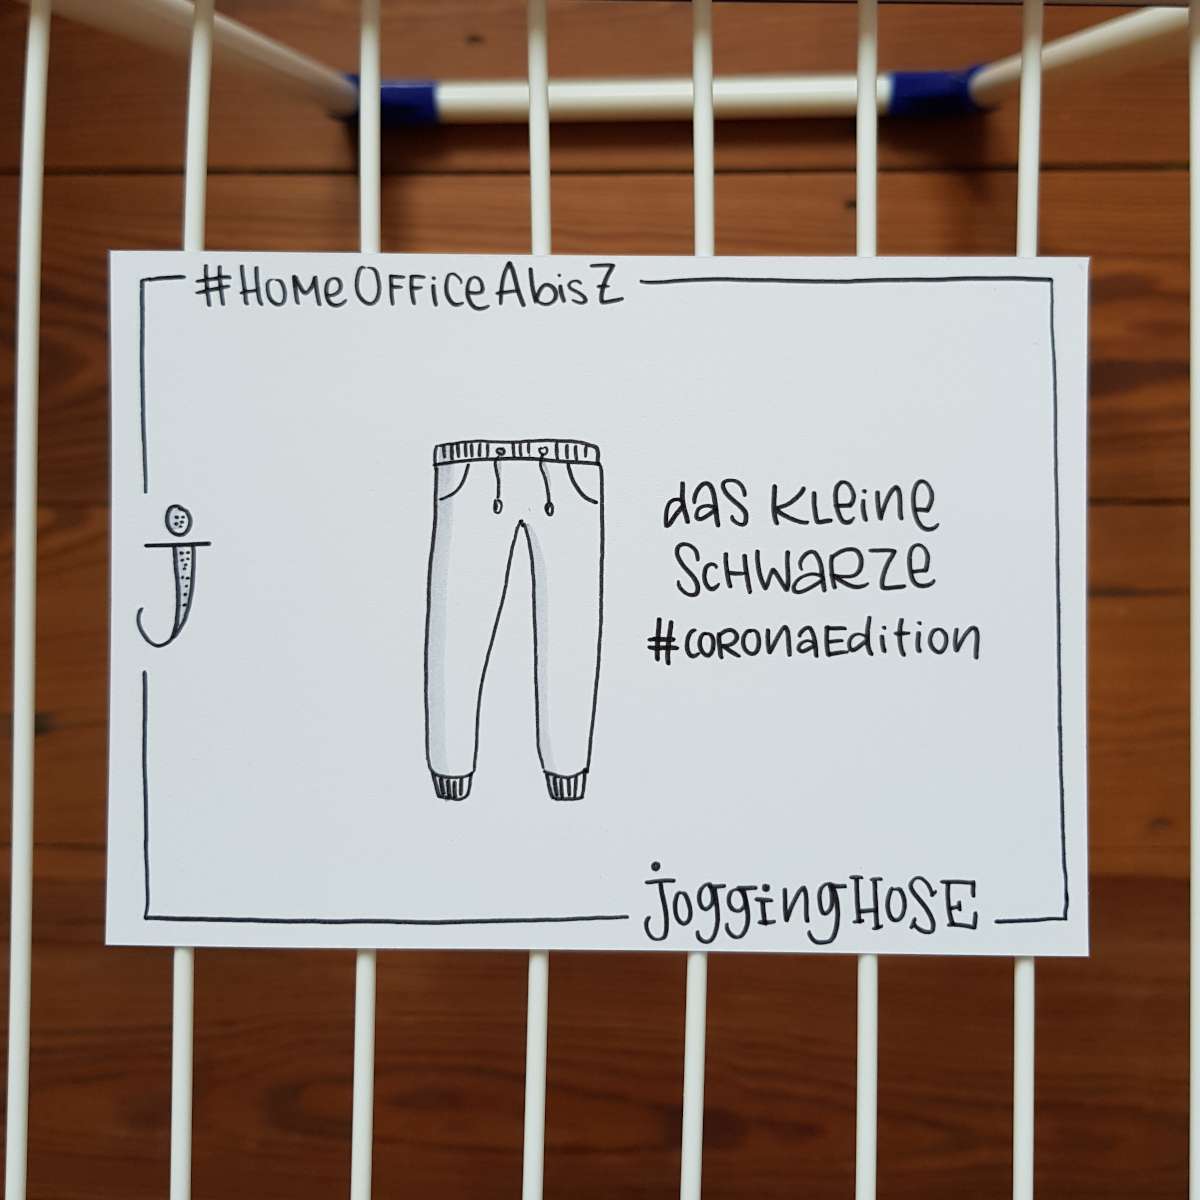 #HomeOfficeAbisZ
j
das kleine
schwarze
#coronaEdition
joggingHose